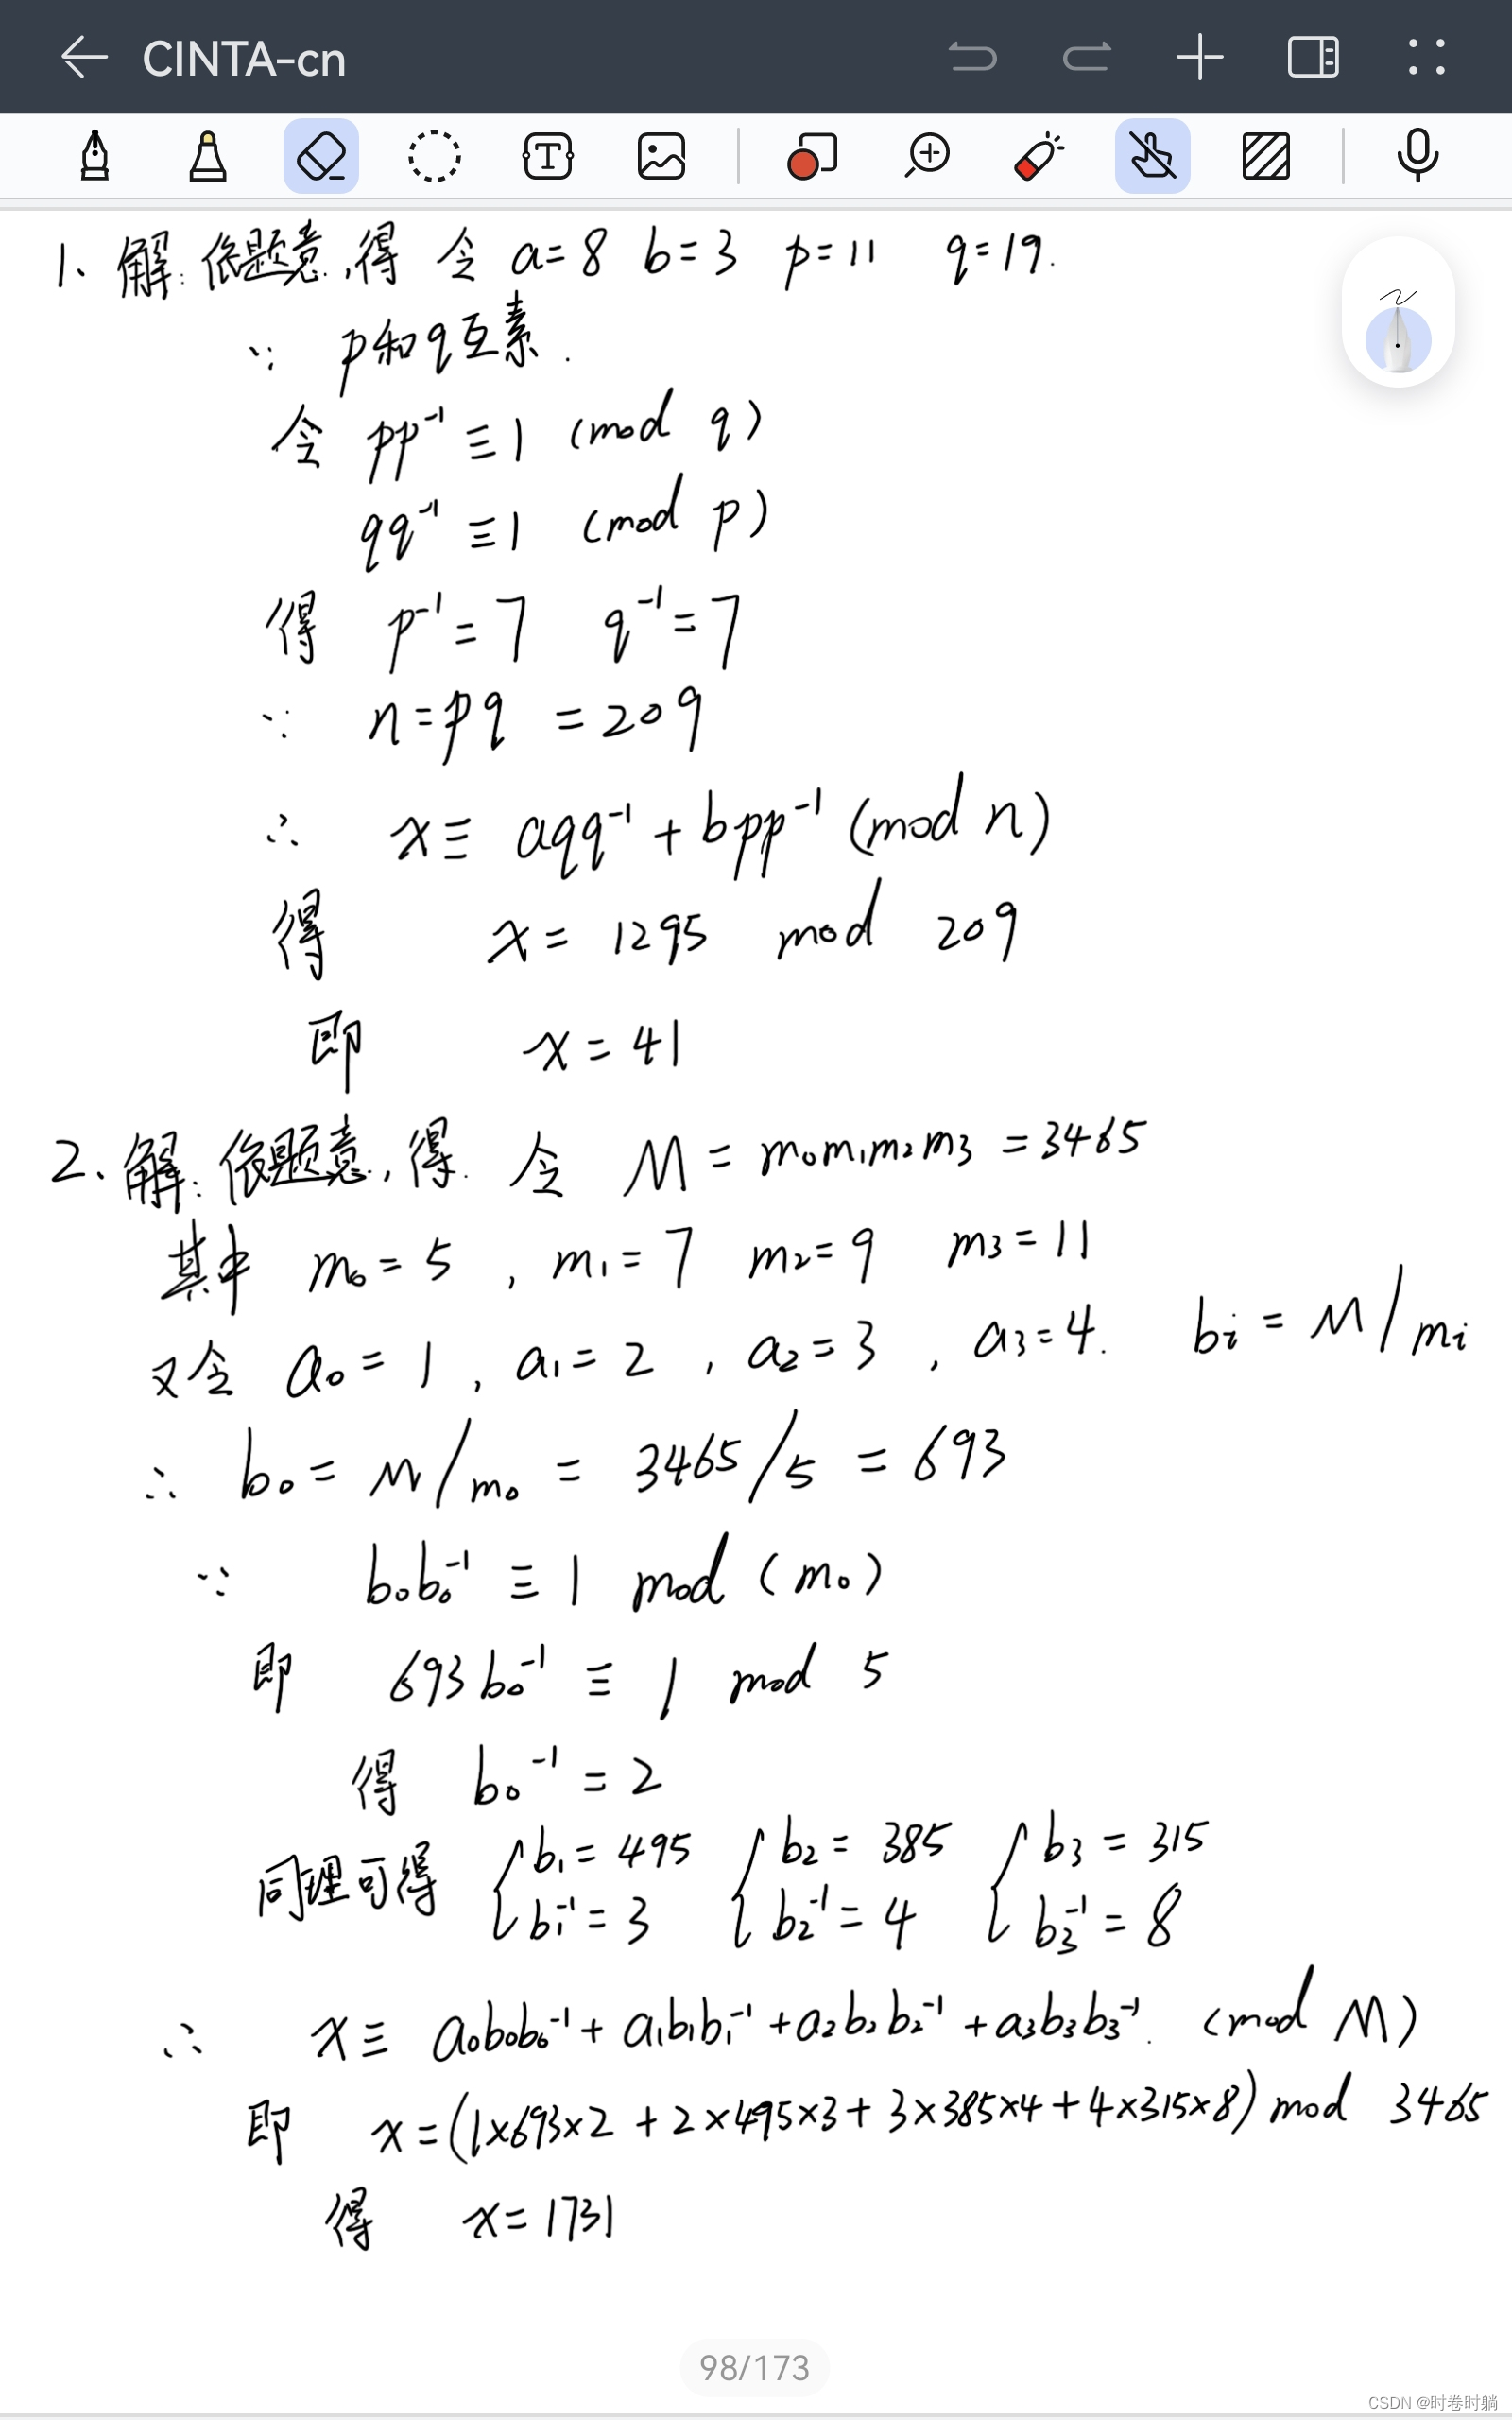 CINTA-cn
1、解:依题意,得 令 a=8 b=3 p=11 q=19.
∵ p和q互素.
令 pp⁻¹ ≡ 1 (mod q)
qq⁻¹ ≡ 1 (mod p)
得 p⁻¹ = 7 q⁻¹ = 7
∵ n = pq = 209
∴ x ≡ aqq⁻¹ + bpp⁻¹ (mod n)
得 x = 1295 mod 209
即 x = 41
2、解:依题意,得. 令 M = m₀m₁m₂m₃ = 3465
其中 m₀ = 5 , m₁ = 7 m₂ = 9 m₃ = 11
又令 a₀ = 1 , a₁ = 2 , a₂ = 3 , a₃ = 4. bᵢ = M/mᵢ
∴ b₀ = M/m₀ = 3465/5 = 693
∵ b₀b₀⁻¹ ≡ 1 mod (m₀)
即 693b₀⁻¹ ≡ 1 mod 5
得 b₀⁻¹ = 2
同理可得 { b₁ = 495 { b₂ = 385 { b₃ = 315
b₁⁻¹ = 3 b₂⁻¹ = 4 b₃⁻¹ = 8
∴ x ≡ a₀b₀b₀⁻¹ + a₁b₁b₁⁻¹ + a₂b₂b₂⁻¹ + a₃b₃b₃⁻¹. (mod M)
即 x = (1×693×2 + 2×495×3 + 3×385×4 + 4×315×8) mod 3465
得 x = 1731
98/173
CSDN @时卷时躺